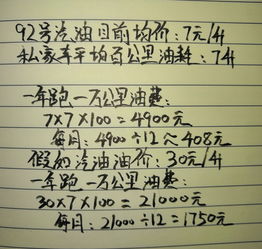 92号汽油目前均价：7元/升
私家车平均百公里油耗：7升
一年跑一万公里油费：
7×7×100=4900元
每月：4900÷12≈408元
假如汽油油价：30元/升
一年跑一万公里油费：
30×7×100=21000元
每月：21000÷12=1750元